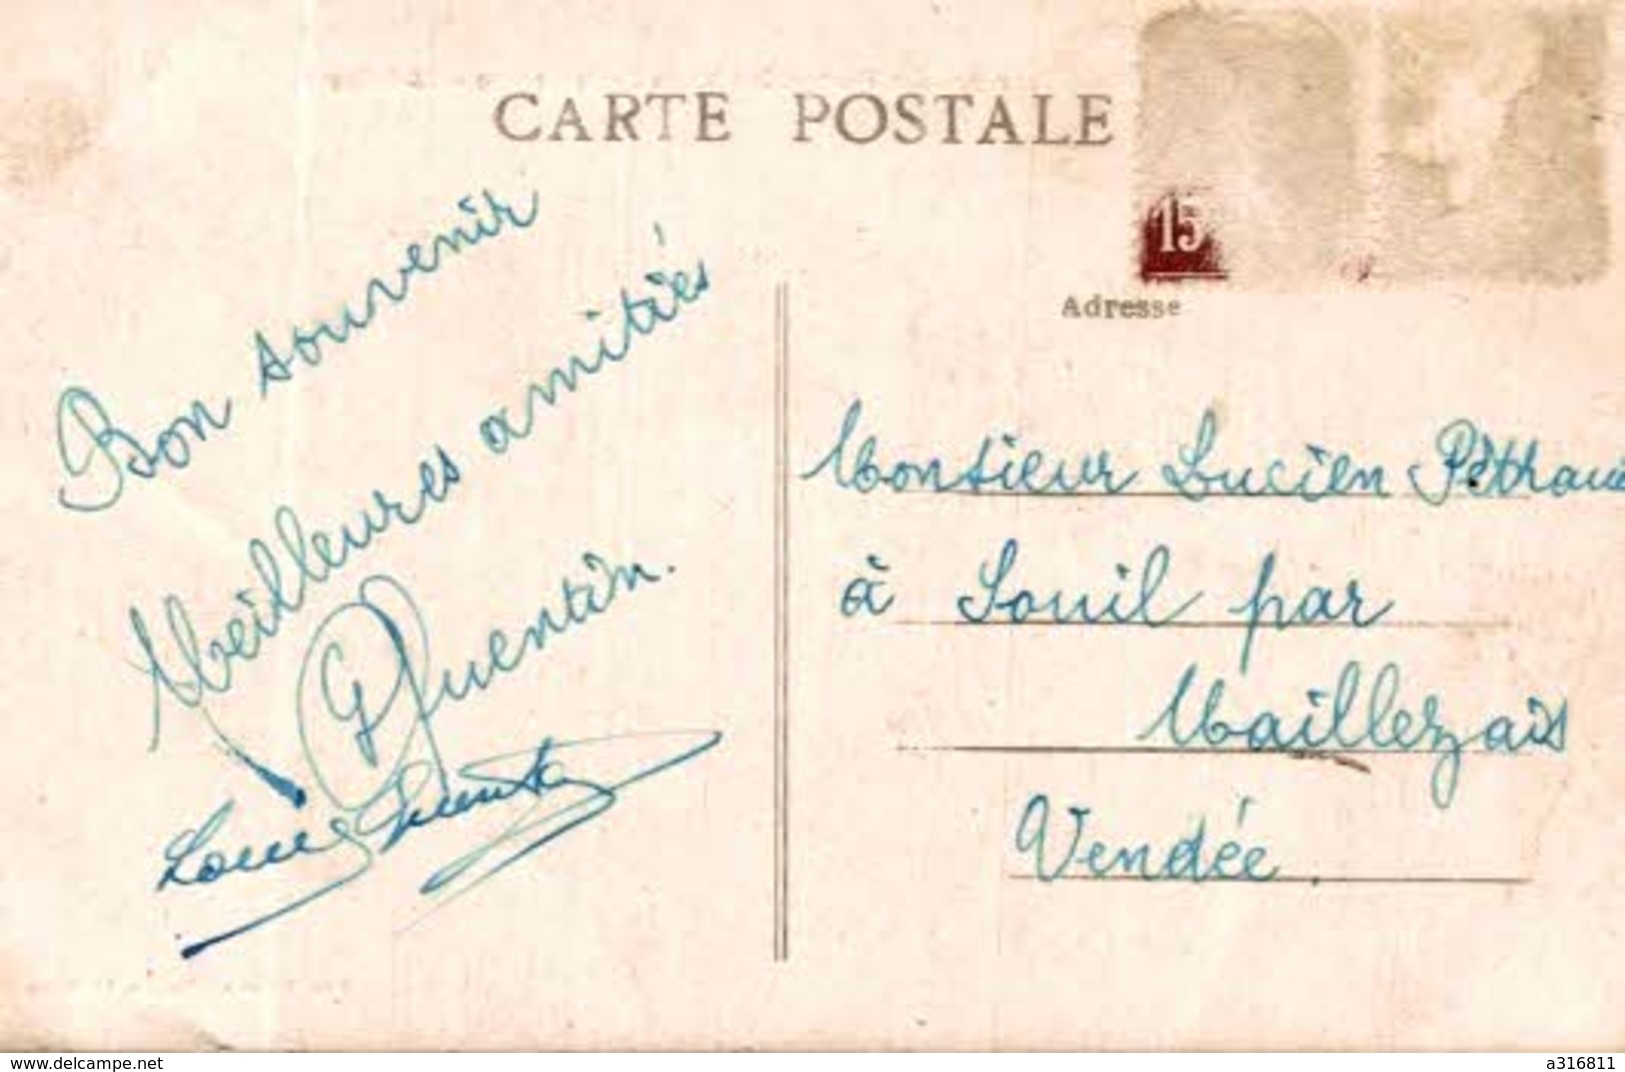 CARTE POSTALE
15
Adresse
Bon souvenir
Meilleures amitiés
G Quentin.
Louis Quentin
Monsieur Lucien
à Souil par
Maillezais
Vendée.
www.delcampe.net
a316811